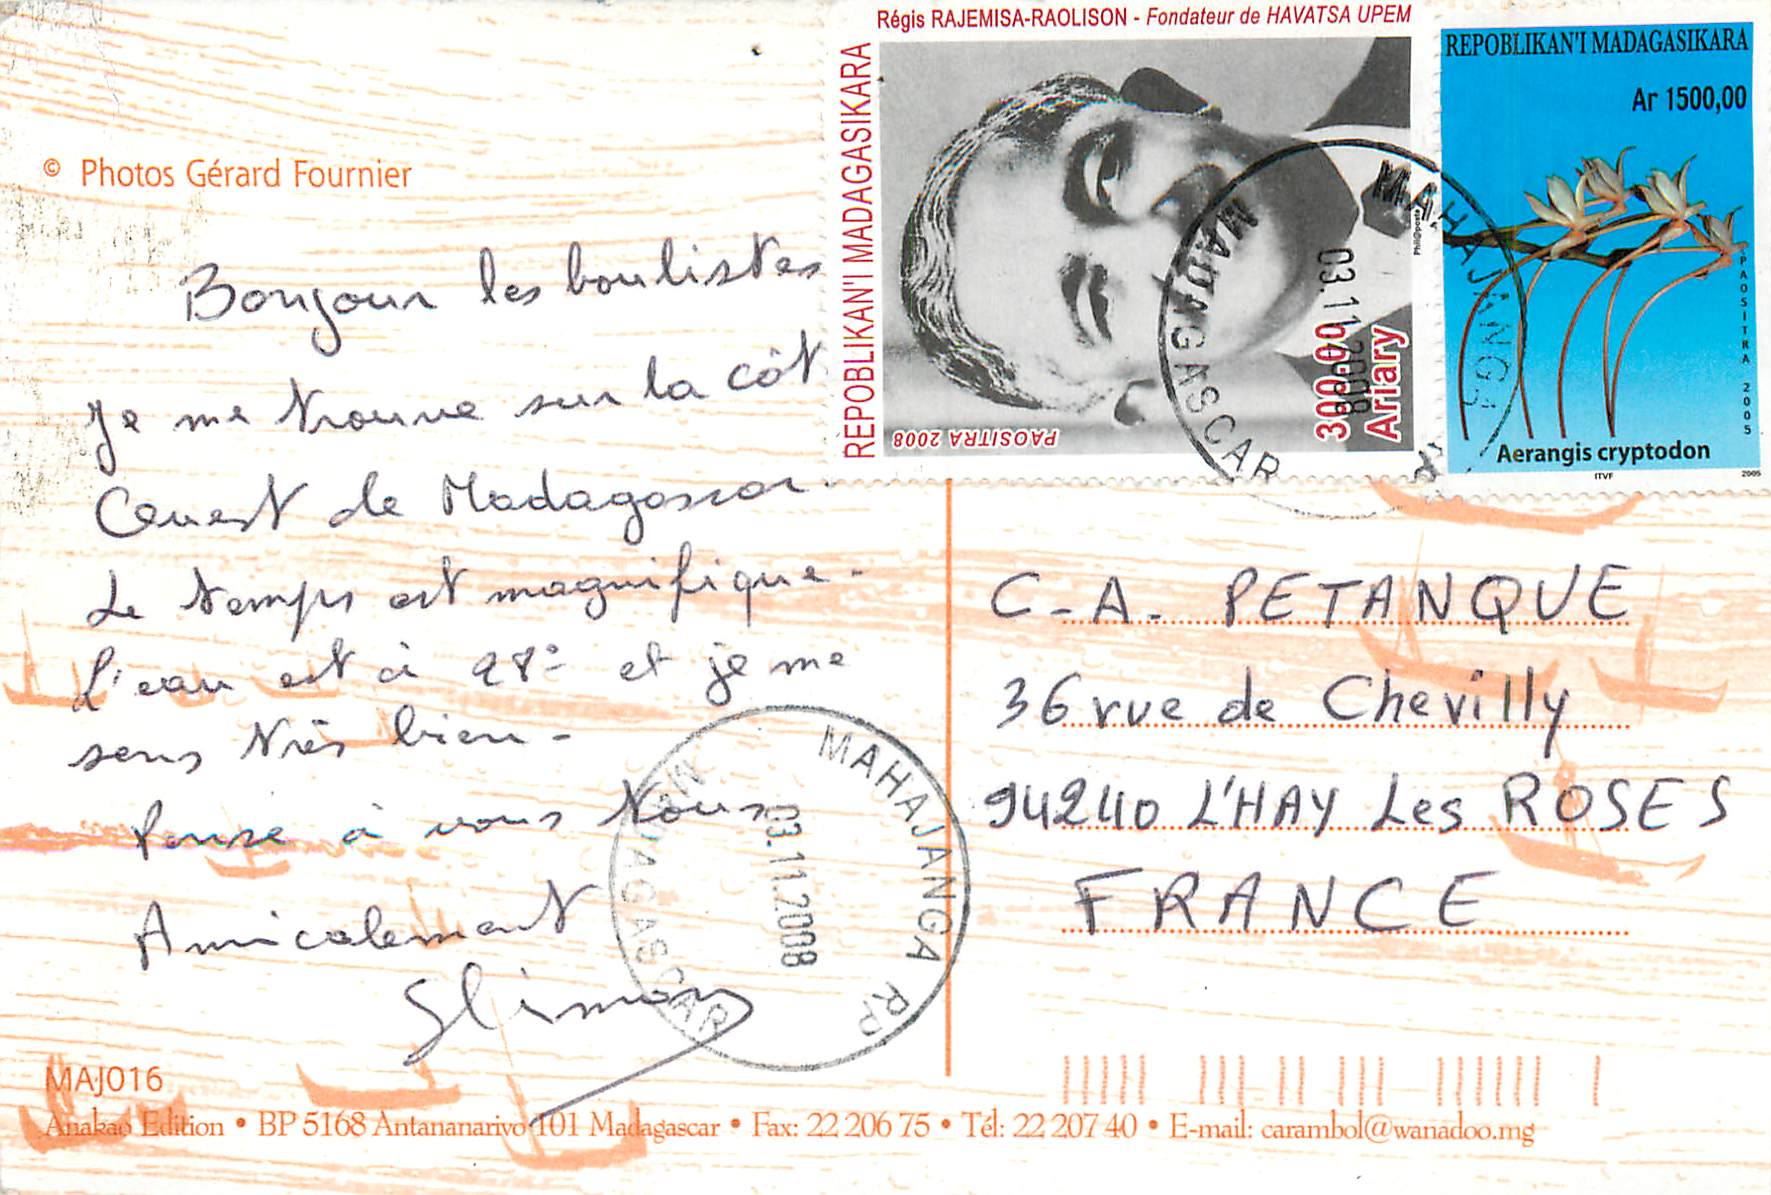 © Photos Gérard Fournier
Bonjour les boulistes
Je me trouve sur la côt
Ouest de Madagascar.
Le temps est magnifique.
L'eau est à 28° et je me
sens très bien.
Pense à vous tous
Amicalement
MAJ016
Anakao Edition • BP 5168 Antananarivo 101 Madagascar • Fax: 22 206 75 • Tél: 22 207 40 • E-mail: carambol@wanadoo.mg
Régis RAJEMISA-RAOLISON - Fondateur de HAVATSA UPEM
REPOBLIKAN'I MADAGASIKARA
PAOSITRA 2008
300,00
Ariary
Phil@poste
REPOBLIKAN'I MADAGASIKARA
Ar 1500,00
PAOSITRA 2005
Aerangis cryptodon
ITVF 2005
MAHAJANGA RP
03.11.2008
MADAGASCAR
MAHAJANGA RP
03.11.2008
MADAGASCAR
C.A. PETANQUE
36 rue de Chevilly
94240 L'HAY Les ROSES
FRANCE